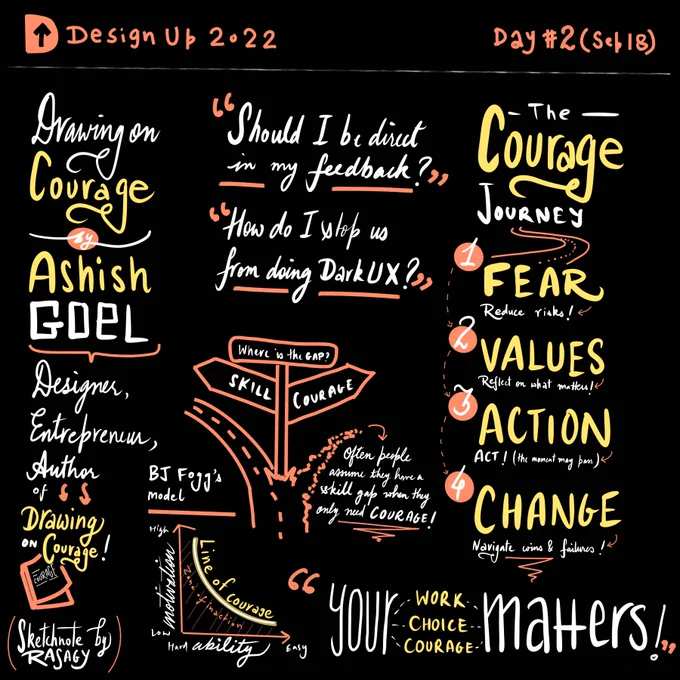 Design Up 2022
Day #2 (Sep 18)
Drawing on
Courage
by
Ashish
GOEL
Designer,
Entrepreneur,
Author
of
Drawing
on Courage!
COURAGE
(Sketchnote by
RASAGY)
"Should I be direct
in my feedback?"
"How do I stop us
from doing Dark UX?"
Where is the GAP?
SKILL
COURAGE
Often people
assume they have a
skill gap when they
only need COURAGE!
BJ Fogg's
model
High
motivation
Low
Line of Courage
Zone of inaction
Hard ability Easy
The
Courage
JOURNEY
1
FEAR
Reduce risks!
2
VALUES
Reflect on what matters!
3
ACTION
ACT! (the moment may pass)
4
CHANGE
Navigate wins & failures!
"YOUR
WORK
CHOICE
COURAGE
matters!"